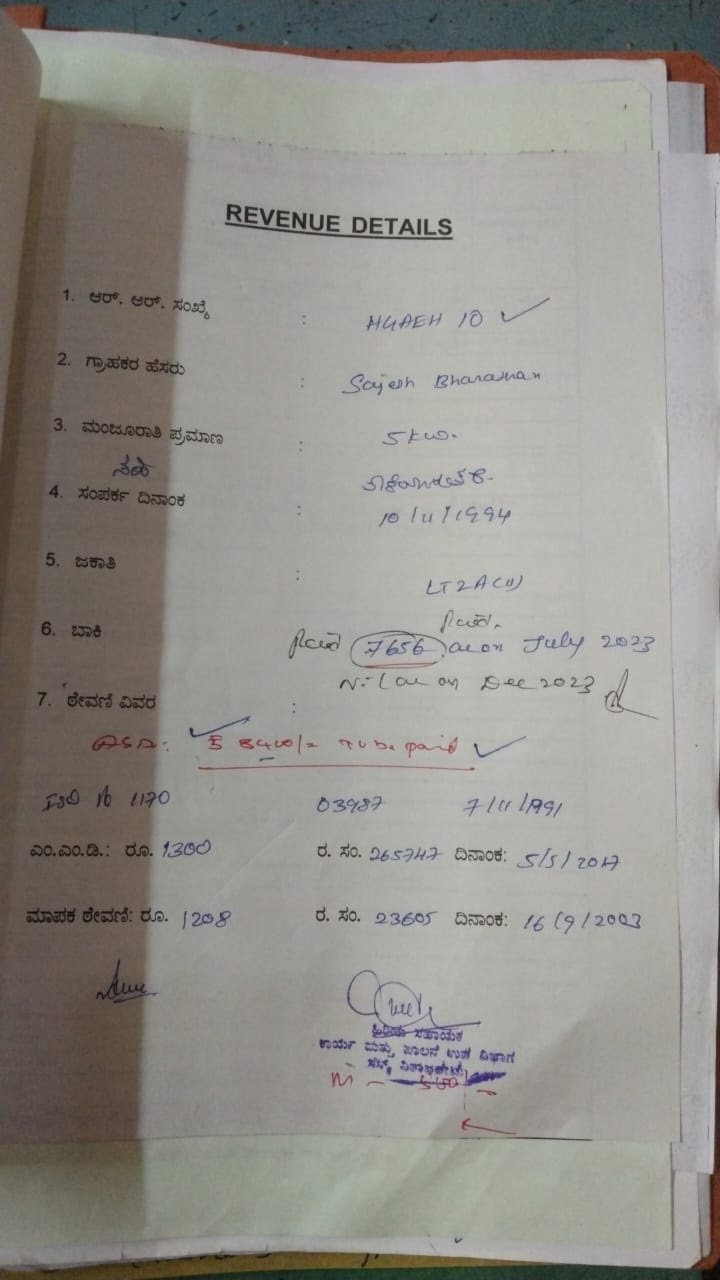 REVENUE DETAILS
1. ಆರ್. ಆರ್. ಸಂಖ್ಯೆ : HGAEH 10
2. ಗ್ರಾಹಕರ ಹೆಸರು :
3. ಮಂಜೂರಾತಿ ಪ್ರಮಾಣ : 5kw.
4. ಸಂಪರ್ಕ ದಿನಾಂಕ : 10/11/1994
5. ಜಕಾತಿ : LT2A(ii)
6. ಬಾಕಿ 7656 as on July 2023
Nil as on Dec 2023
7. ಠೇವಣಿ ವಿವರ :
ASD: paid
1170 03987 7/11/1991
ಎಂ.ಎಂ.ಡಿ.: ರೂ. 1300 ರ. ಸಂ. 265747 ದಿನಾಂಕ: 5/5/2017
ಮಾಪಕ ಠೇವಣಿ: ರೂ. 1208 ರ. ಸಂ. 23605 ದಿನಾಂಕ: 16/9/2003
ಹಿರಿಯ ಸಹಾಯಕ
ಕಾರ್ಯ ಮತ್ತು ಪಾಲನೆ ಉಪ ವಿಭಾಗ